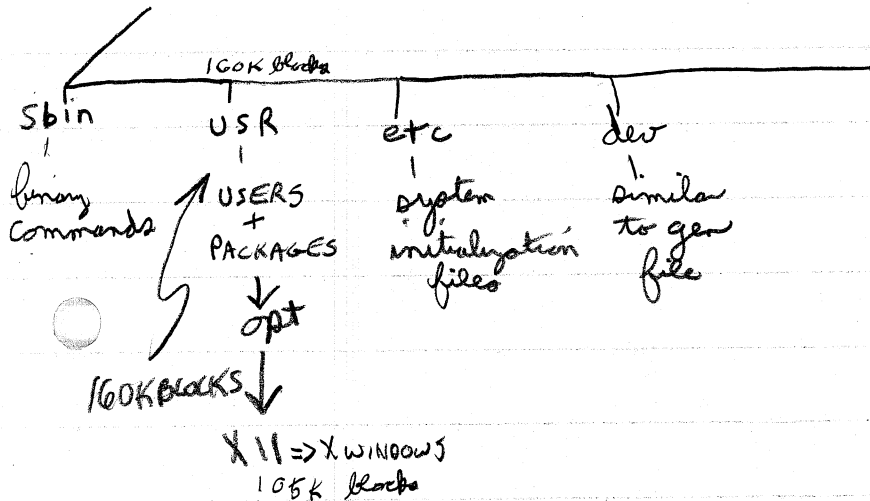 160K blocks
sbin
binary
commands
USR
USERS
+
PACKAGES
opt
160K BLOCKS
X11 => X WINDOWS
105K blocks
etc
system
initialization
files
dev
similar
to gen
file